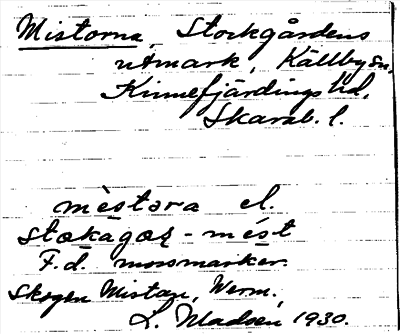 Mistorna, Stockgårdens
utmark, Källby sn,
Kinnefjärdings hd,
Skarab. l.
mèstəra el.
stɶkagɶʐ - mést
F.d. mossmarker.
Skogen Mistan, Werm.
L. Madsén 1930.